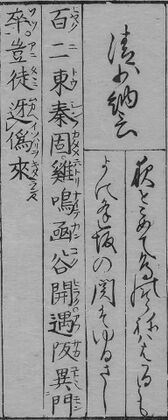 清少納言
夜をこめて鳥のそらねははかるとも
よに逢坂の関はゆるさし
百二東秦固雞鳴函谷開遇阪異門
卒豈徒迓僞來